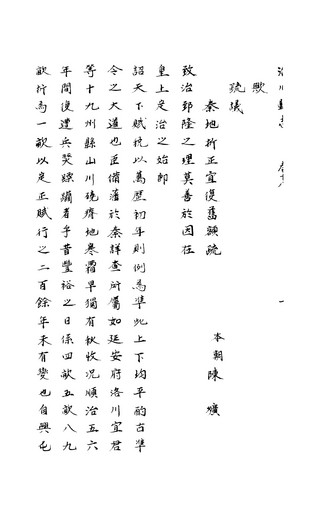 洛川縣志
歟
疏議
秦地折正宜復舊額疏
本朝陳爌
致治郅隆之理莫善於因在
皇上定治之始即
詔天下賦稅以萬歷初年則例為準此上下均平酌古準
今之大道也臣備藩於秦詳查所屬如延安府洛川宜君
等十九州縣山川磽瘠地寒霜早獨有秋收況順治五六
年間復遭兵燹蹂躪者乎昔豐裕之日係四畝五畝八九
畝折為一畝以定正賦行之二百餘年未有變也自興屯